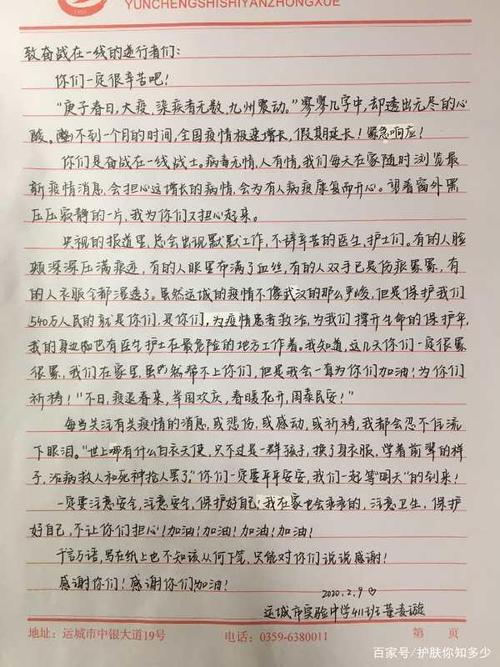 YUNCHENGSHISHIYANZHONGXUE
致奋战在一线的逆行者们：
你们一定很辛苦吧！
“庚子春日，大疫，染疾者无数，九州震动。”寥寥几字中，却透出无尽的心
酸。不到一个月的时间，全国疫情极速增长，假期延长！紧急响应！
你们是奋战在一线战士。病毒无情，人有情，我们每天在家随时浏览最
新疫情消息，会担心这增长的病情，会为有人病疫康复而开心。望着窗外黑
压压寂静的一片，我为你们又担心起来。
央视的报道里，总会出现默默工作，不辞辛苦的医生，护士们。有的人脸
颊深深压满痕迹，有的人眼里布满了血丝，有的人双手已是伤痕累累，有
的人衣服全都湿透了。虽然运城的疫情不像武汉的那么严峻，但是保护我们
540万人民的就是你们，是你们，为疫情患者救治，为我们撑开生命的保护伞，
我的身边也有医生护士在最危险的地方工作着。我知道，这几天你们一定很累
很累，我们在家里，虽然帮不上你们，但是我会一直为你们加油！为你们
祈祷！“不日，疫退春来，举国欢庆，春暖花开，国泰民安！”
每当关注有关疫情的消息，或悲伤，或感动，或祈祷，我都会忍不住流
下眼泪。“世上哪有什么白衣天使，只不过是一群孩子，换了身衣服，学着前辈的样
子，治病救人和死神抢人罢了。”你们一定要平平安安，我们一起等“明天”的到来！
一定要注意安全，注意安全，保护好自己！我在家也会乖乖的，注意卫生，保护
好自己，不让你们担心！加油！加油！加油！加油！
千言万语，写在纸上也不知该从何下笔，只能对你们说说感谢！
感谢你们！感谢你们加油！
2020.2.9
运城市实验中学411班
地址：运城市中银大道19号 电话：0359-6380011 第 页
百家号/护肤你知多少